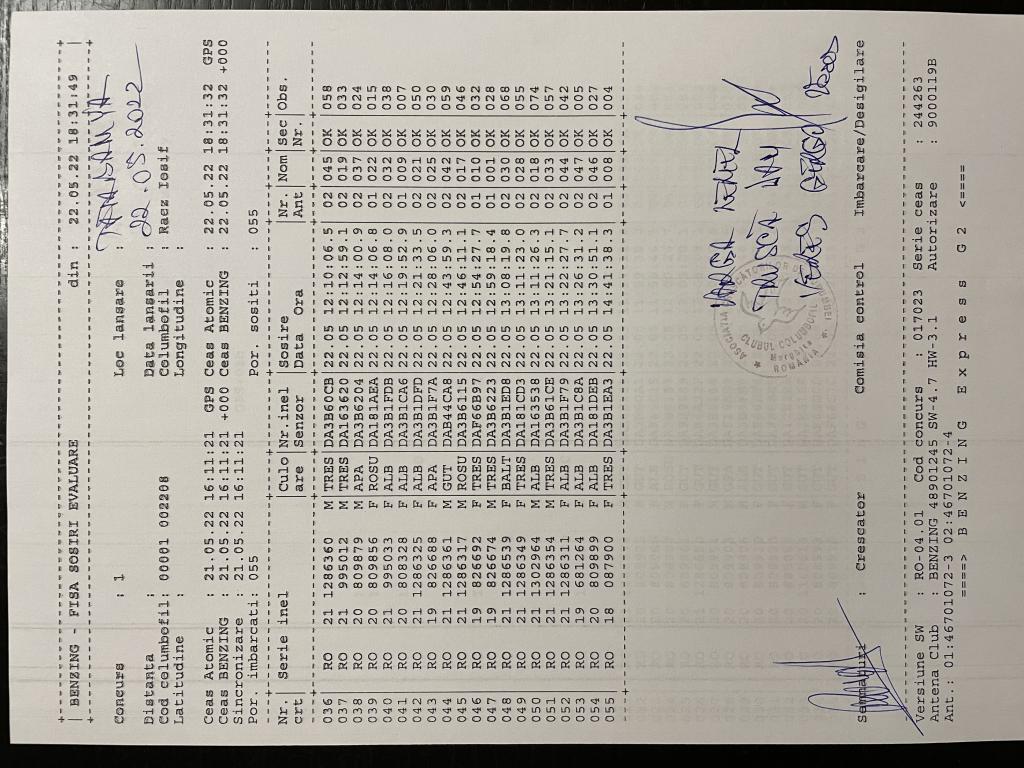 BENZING - FISA SOSIRI EVALUARE din : 22.05.22 18:31:49
Concurs : 1 Loc lansare :
Distanta : Data lansarii : 22.05.2022
Cod columbofil: 00001 002208 Columbofil : Racz Iosif
Latitudine : Longitudine :
Ceas Atomic : 21.05.22 16:11:21 GPS Ceas Atomic : 22.05.22 18:31:32 GPS
Ceas BENZING : 21.05.22 16:11:21 +000 Ceas BENZING : 22.05.22 18:31:32 +000
Sincronizare : 21.05.22 16:11:21
Por. imbarcati: 055 Por. sositi : 055
Nr. | Serie inel Culo | Nr.inel | Sosire | Nr | Nom | Sec | Obs.
crt | are | Senzor | Data Ora | Ant | | Nr. |
036 RO 21 1286360 M TRES DA3B60CB 22.05 12:10:06.5 02 045 OK 058
037 RO 21 995012 M TRES DA163620 22.05 12:12:59.1 02 019 OK 033
038 RO 20 809879 M APA DA3B6204 22.05 12:14:00.9 02 037 OK 024
039 RO 20 809856 F ROSU DA181AEA 22.05 12:14:06.8 01 022 OK 015
040 RO 21 995033 F ALB DA3B1FDB 22.05 12:16:08.0 02 032 OK 038
041 RO 20 808328 F ALB DA3B1CA6 22.05 12:19:52.9 01 009 OK 007
042 RO 21 1286325 F ALB DA3B1DFD 22.05 12:21:33.5 02 021 OK 050
043 RO 19 826688 F APA DA3B1F7A 22.05 12:28:06.0 02 025 OK 030
044 RO 21 1286361 M GUT DAB44CA8 22.05 12:43:59.3 02 042 OK 059
045 RO 21 1286317 M ROSU DA3B6115 22.05 12:46:11.1 02 017 OK 046
046 RO 19 826692 F TRES DAF66B97 22.05 12:54:27.7 01 010 OK 032
047 RO 19 826674 M TRES DA3B6223 22.05 12:59:18.4 01 001 OK 028
048 RO 21 1286539 F BALT DA3B1ED8 22.05 13:08:19.8 02 030 OK 068
049 RO 21 1286349 F TRES DA181CD3 22.05 13:11:23.0 02 028 OK 055
050 RO 21 1302964 M ALB DA163538 22.05 13:11:26.3 02 018 OK 074
051 RO 21 1286354 M TRES DA3B61CE 22.05 13:21:15.1 01 033 OK 057
052 RO 21 1286311 F ALB DA3B1F79 22.05 13:22:27.7 02 044 OK 042
053 RO 19 681264 F ALB DA3B1C8A 22.05 13:26:31.2 02 047 OK 005
054 RO 20 809899 F ALB DA181DEB 22.05 13:30:51.1 02 046 OK 027
055 RO 18 087900 F TRES DA3B1EA3 22.05 14:41:38.3 01 008 OK 004
CLUBUL COLUMBOFIL
Marghita
ROMÂNIA
Semnaturi : Crescator Comisia control Imbarcare/Desigilare
Versiune SW : RO-04.01 Cod concurs : 017023 Serie ceas : 244263
Antena Club : BENZING 48901245 SW-4.7 HW-3.1 Autorizare : 9000119B
Ant.: 01:46701072-3 02:46701072-4
====> B E N Z I N G E x p r e s s G 2 <====